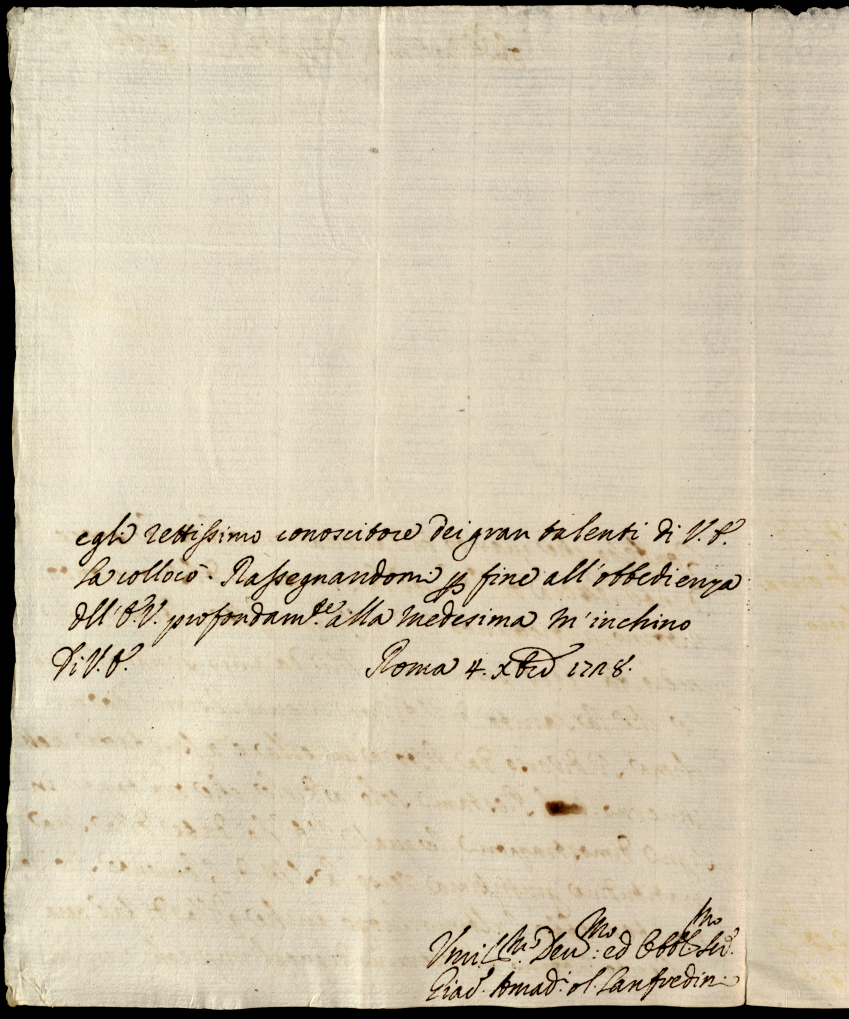 egli rettissimo conoscitore dei gran talenti di V. E.
La collocò. Rassegnandomi p fine all'obbedienza
dll'E.V. profondam.te alla medesima m'inchino
Di V. E. Roma 4. Xbre 1728.
Umil.mo Dev.mo ed Obbl.mo Ser.
Giac. Amad. Lanfredin